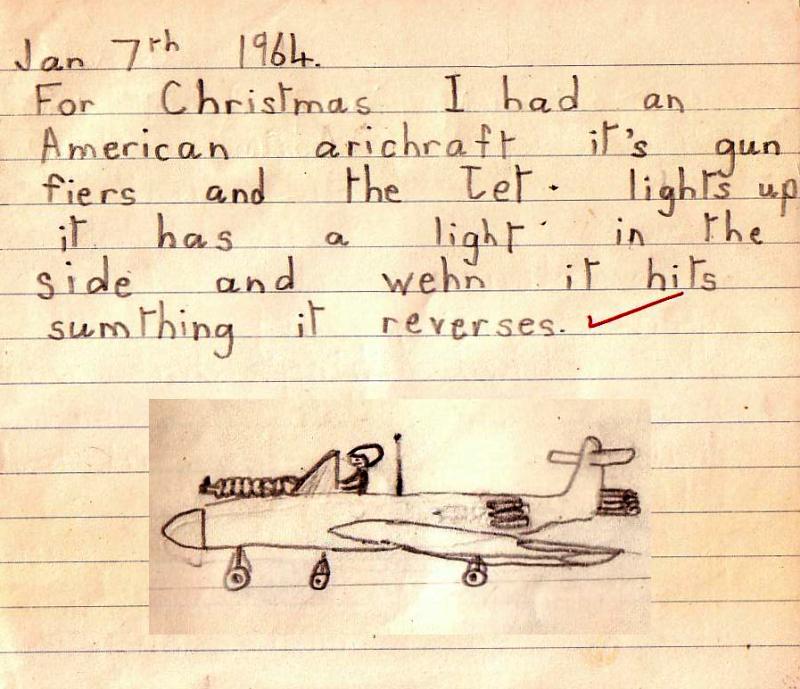 Jan 7th 1964.
For Christmas I had an
American arichraft it's gun
fiers and the Iet. lights up
it has a light in the
side and wehn it hits
sumthing it reverses.